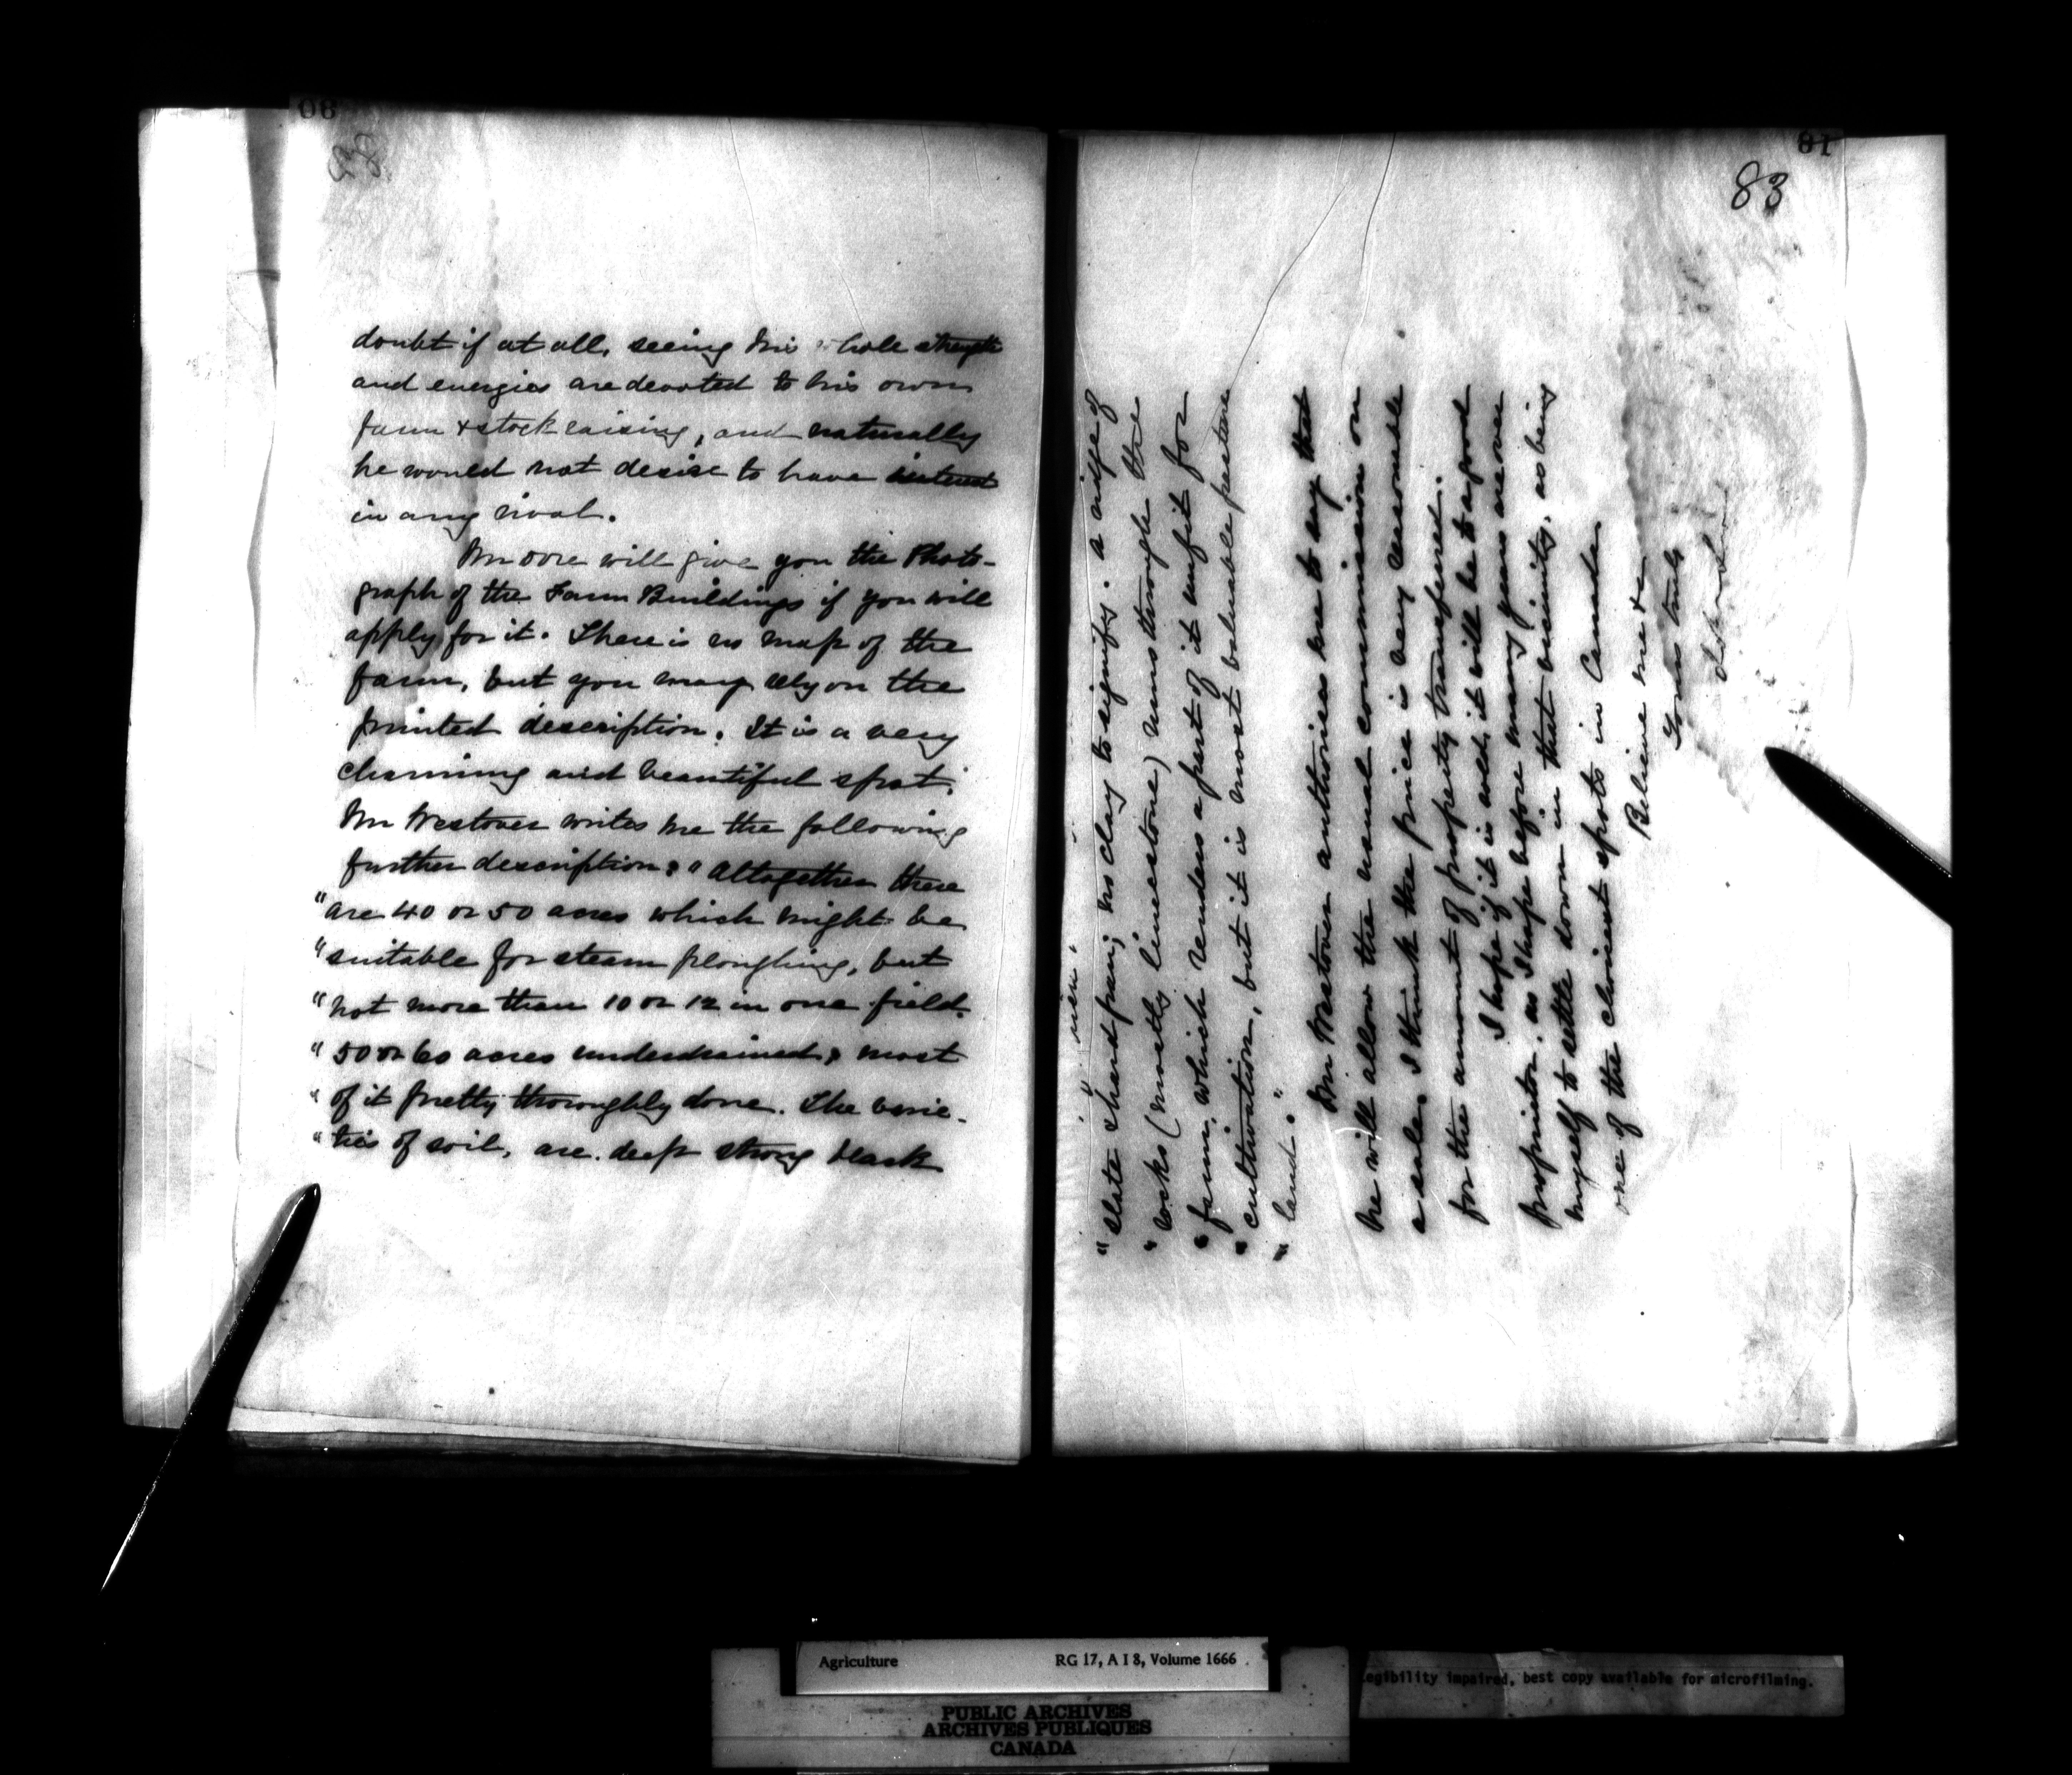 80
82
doubt if at all, seeing his whole strength
and energies are devoted to his own
farm & stock raising, and naturally
he would not desire to have interest
in any rival.
Moore will give you the Photo-
graph of the Farm Buildings if you will
apply for it. There is no map of the
farm, but you may rely on the
printed description. It is a very
charming and beautiful spot.
Mr Westover writes me the following
further description: "Altogether there
"are 40 or 50 acres which might be
"suitable for steam ploughing, but
"not more than 10 or 12 in one field.
"50 or 60 acres underdrained, most
"of it pretty thoroughly done. The varie-
"ties of soil, are deep strong black
81
83
"slate & hard pan; no clay to signify. A ridge of
"rocks (mostly limestone) runs through the
"farm, which renders a part of it unfit for
"cultivation, but it is most valuable pasture
"land."
Mr Westover authorises me to say that
he will allow the usual commission on
a sale. I think the price is very reasonable
for the amount of property transferred.
I hope if it is sold, it will be to a good
proprietor, as I hope before many years are over
myself to settle down in that vicinity, as being
one of the choicest spots in Canada
Believe me &c
Yours truly
Agriculture RG 17, A I 8, Volume 1666
PUBLIC ARCHIVES
ARCHIVES PUBLIQUES
CANADA
legibility impaired, best copy available for microfilming.